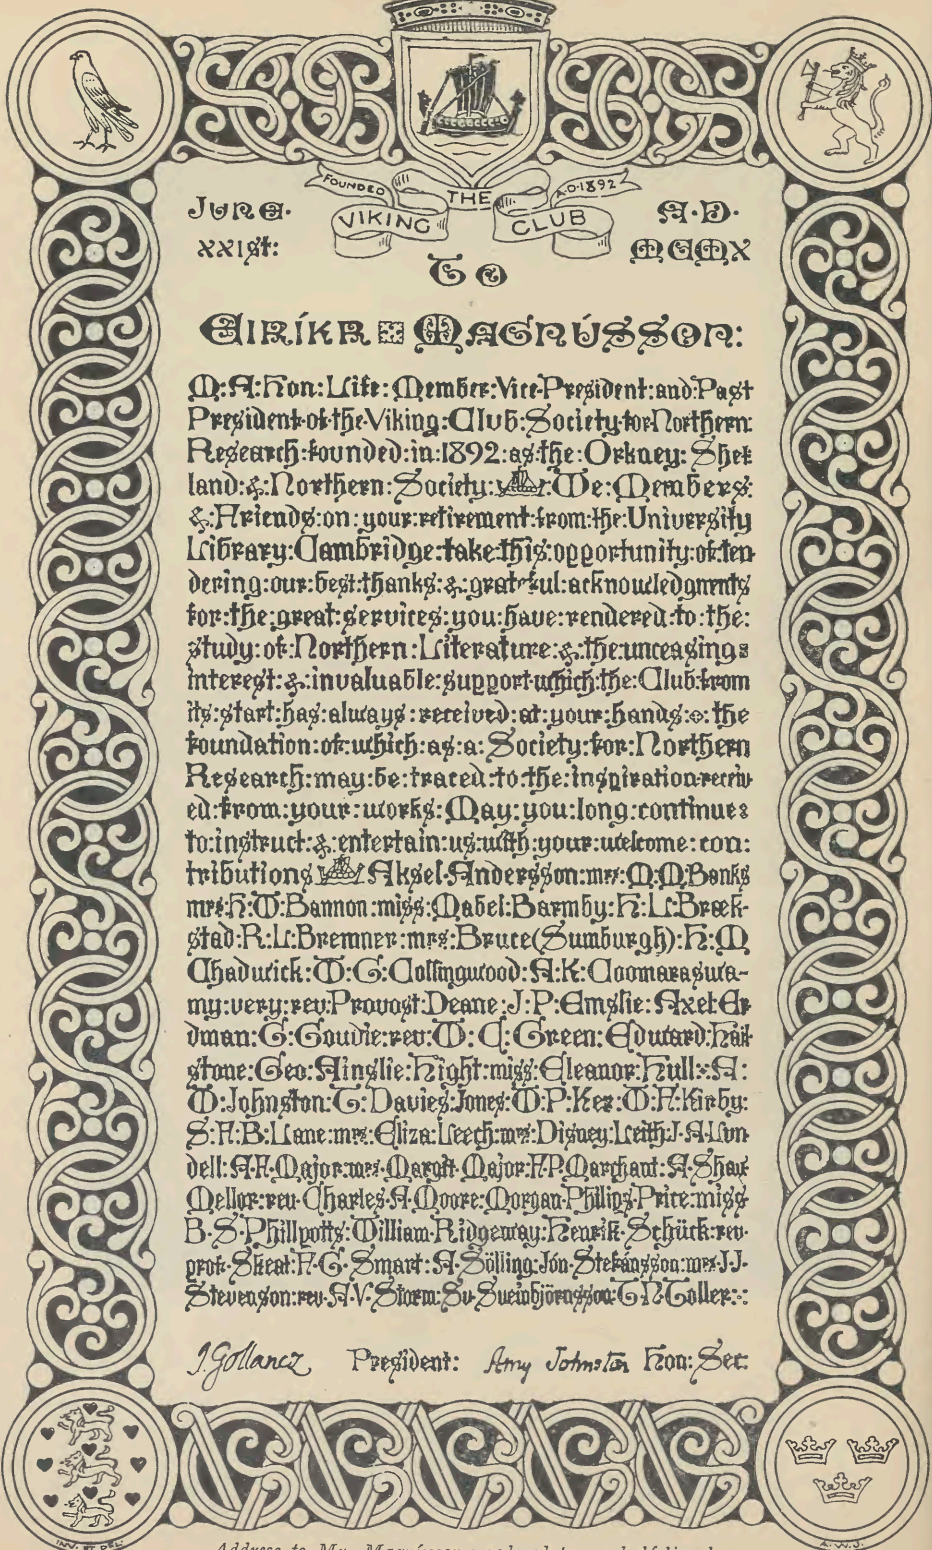 FOUNDED THE A.D. 1892
VIKING CLUB
JUNE· A·D·
XXIst: MCMX
To
EIRÍKR MAGNÚSSON:
M:A:Hon:Life:Member:Vice-President:and:Past
President·of·the·Viking:Club:Society·for·Northern:
Research:founded:in:1892:as:the:Orkney:Shet
land:&:Northern:Society: :We:Members:
&:Friends:on:your:retirement:from:the:University
Library:Cambridge:take:this:opportunity:of:ten
dering:our:best:thanks:&:grateful:acknowledgments
for:the:great:services:you:have:rendered:to:the:
study:of:Northern:Literature:&:the:unceasing:
interest:&:invaluable:support:which:the:Club:from
its:start:has:always:received:at:your:hands: the
foundation:of:which:as:a:Society:for:Northern
Research:may:be:traced:to:the:inspiration:receiv
ed:from:your:works:May:you:long:continue:
to:instruct:&:entertain:us:with:your:welcome:con:
tributions Aksel·Andersson:mrs:M:M:Banks
mrs:H:W:Bannon:miss:Mabel:Barmby:H:L:Bræk-
stad:R:L:Bremner:mrs:Bruce(Sumburgh):H:M
Chadwick:W:G:Collingwood:A:K:Coomaraswa-
my:very:rev:Provost:Deane:J:P:Emslie:Axel:Er
dman:G:Goudie:rev:W:C:Green:Edward:Hail
stone:Geo:Ainslie:Hight:miss:Eleanor:Hull:A:
W:Johnston:T:Davies:Jones:W:P:Ker:W:F:Kirby:
S:F:B:Lane:mrs:Eliza:Leech:mrs:Disney:Leith:J·A·Lun
dell:A·F·Major:mrs·Margt·Major:F·P·Marchant:A·Shaw
Mellor:rev·Charles·A·Moore:Morgan·Philips·Price:miss
B·S·Phillpotts:William·Ridgeway:Henrik·Schück:rev·
prof·Skeat:F·G·Smart:A·Sölling:Jón·Stefánsson:mrs·J·J·
Stevenson:rev·A·V·Storm:Sv·Sveinbjörnsson:T·N·Toller::
I. Gollancz President: Amy Johnston Hon: Sec:
INV. ET DEL. A.W.J.